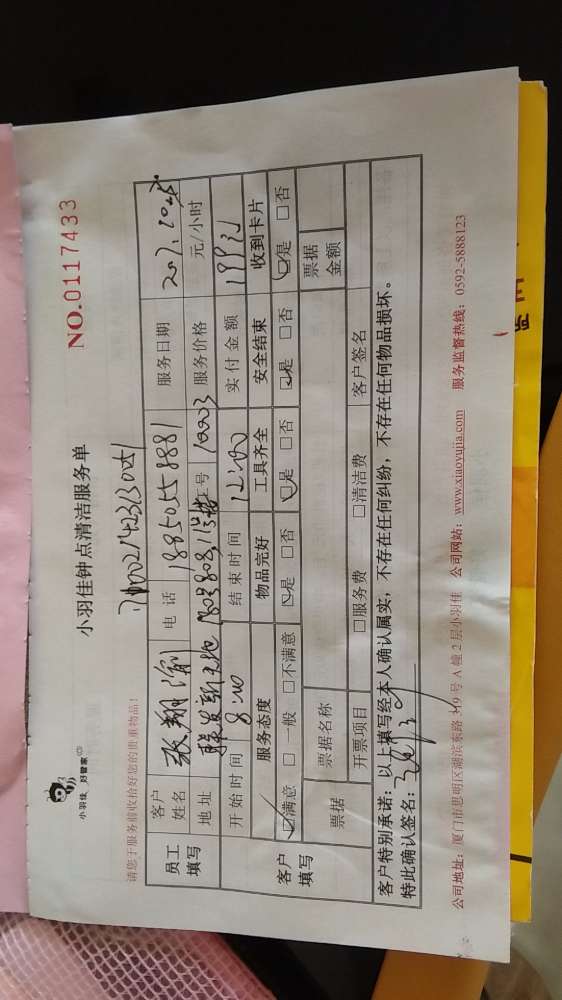 小羽佳 好管家
小羽佳钟点清洁服务单
NO.0117433
请您于服务前收拾好您的贵重物品!
员工填写
客户姓名 张翔 电话 18850558881 服务日期
地址 服务价格 元/小时
工号 10003
开始时间 8:00 结束时间 12:00 实付金额 199元
客户填写
服务态度 物品完好 工具齐全 安全结束 收到卡片
☑满意 □一般 □不满意 ☑是 □否 ☑是 □否 ☑是 □否 ☑是 □否
票据 票据名称 票据金额
开票项目 □服务费 □清洁费 客户签名
客户特别承诺:以上填写经本人确认属实,不存在任何纠纷,不存在任何物品损坏。
特此确认签名:
公司地址:厦门市思明区湖滨东路319号A幢2层小羽佳 公司网站:www.xiaoyujia.com 服务监督热线:0592-5888123